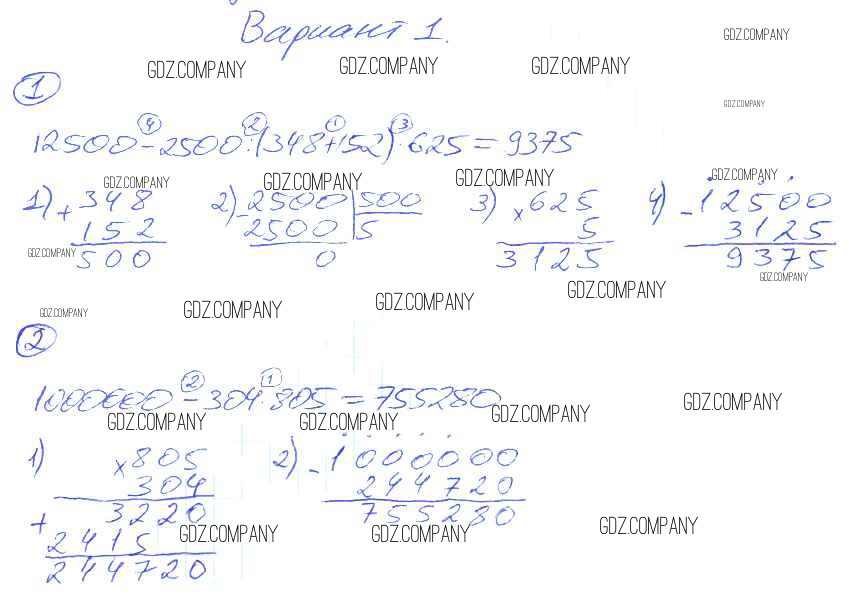 Вариант 1.
GDZ.COMPANY
GDZ.COMPANY GDZ.COMPANY GDZ.COMPANY
1
GDZ.COMPANY
4 2 1 3
12500 - 2500 : (348+152) · 625 = 9375
GDZ.COMPANY GDZ.COMPANY GDZ.COMPANY GDZ.COMPANY
1) + 348 2) - 2500 500 3) × 625 4) - 12500
152 2500 5 5 3125
500 0 3125 9375
GDZ.COMPANY GDZ.COMPANY
GDZ.COMPANY GDZ.COMPANY GDZ.COMPANY GDZ.COMPANY
2
2 1
1000000 - 304 · 805 = 755280
GDZ.COMPANY GDZ.COMPANY GDZ.COMPANY GDZ.COMPANY
1) × 805 2) - 1000000
304 244720
+ 3220 755280
2415
GDZ.COMPANY GDZ.COMPANY GDZ.COMPANY
244720